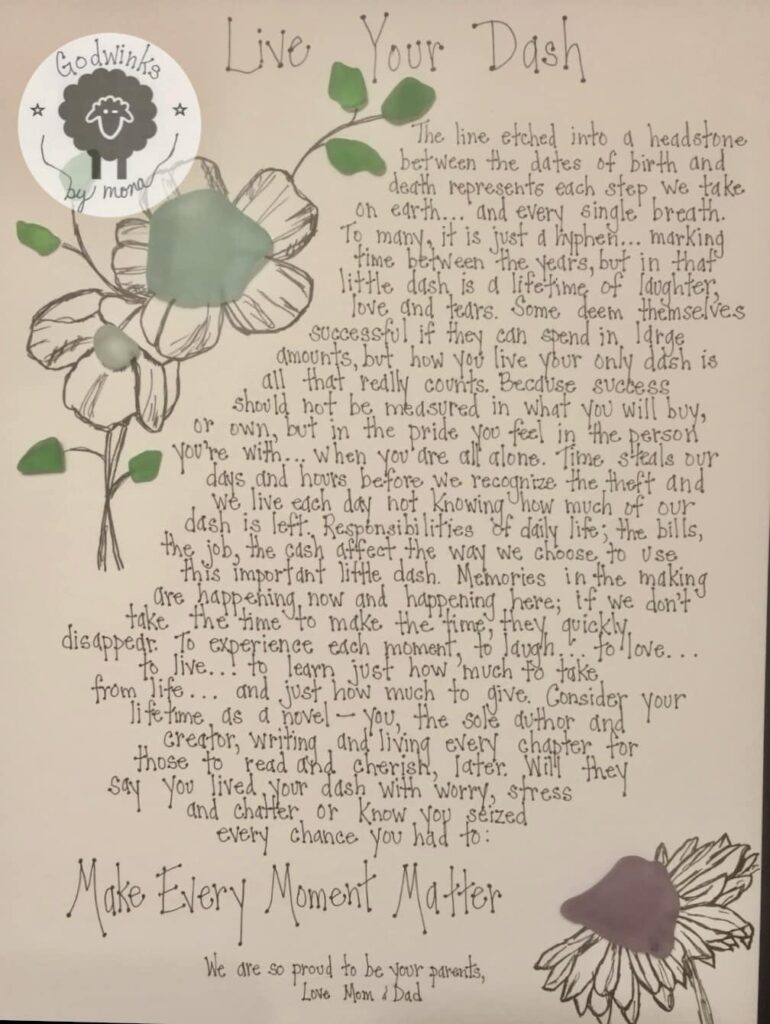 Godwinks
by mona
Live Your Dash
The line etched into a headstone
between the dates of birth and
death represents each step we take
on earth... and every single breath.
To many, it is just a hyphen... marking
time between the years, but in that
little dash is a lifetime of laughter,
love and tears. Some deem themselves
successful if they can spend in large
amounts, but how you live your only dash is
all that really counts. Because success
should not be measured in what you will buy,
or own, but in the pride you feel in the person
you're with... when you are all alone. Time steals our
days and hours before we recognize the theft and
we live each day not knowing how much of our
dash is left. Responsibilities of daily life; the bills,
the job, the cash affect the way we choose to use
this important little dash. Memories in the making
are happening now and happening here; if we don't
take the time to make the time, they quickly
disappear. To experience each moment, to laugh... to love...
to live... to learn just how much to take
from life... and just how much to give. Consider your
lifetime as a novel — you, the sole author and
creator, writing and living every chapter for
those to read and cherish, later. Will they
say you lived your dash with worry, stress
and chatter or know you seized
every chance you had to:
Make Every Moment Matter
We are so proud to be your parents,
Love Mom & Dad